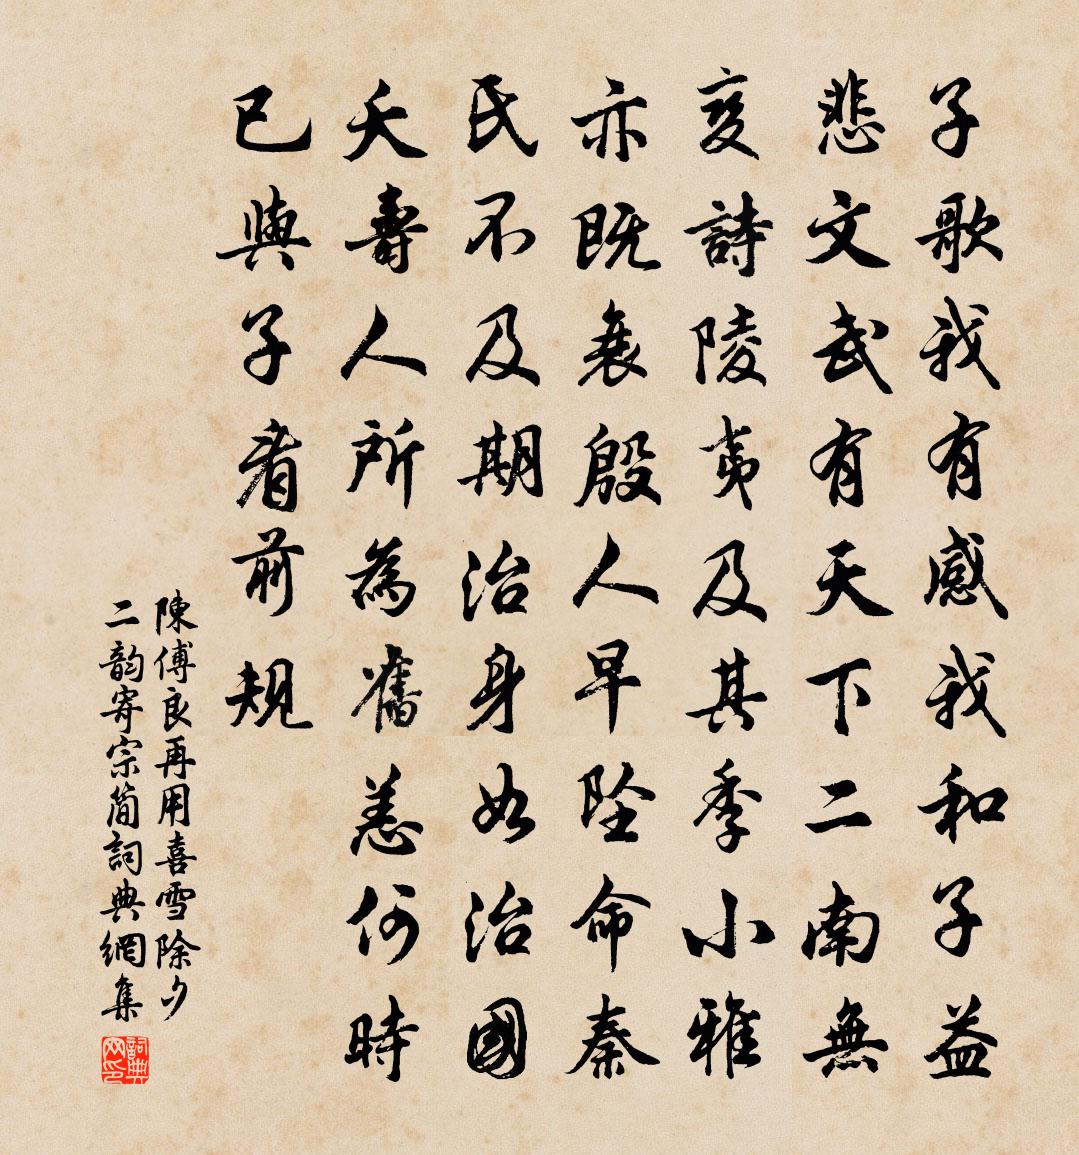 子歌我有感我和子益
悲文武有天下二南無
变詩陵夷及其季小雅
亦既衰殷人早坠命秦
氏不及期治身如治國
夭壽人所為舊恙何時
已與子看前規
陳傅良再用喜雪除夕
二韵寄宗简詞典網集
詞典网印